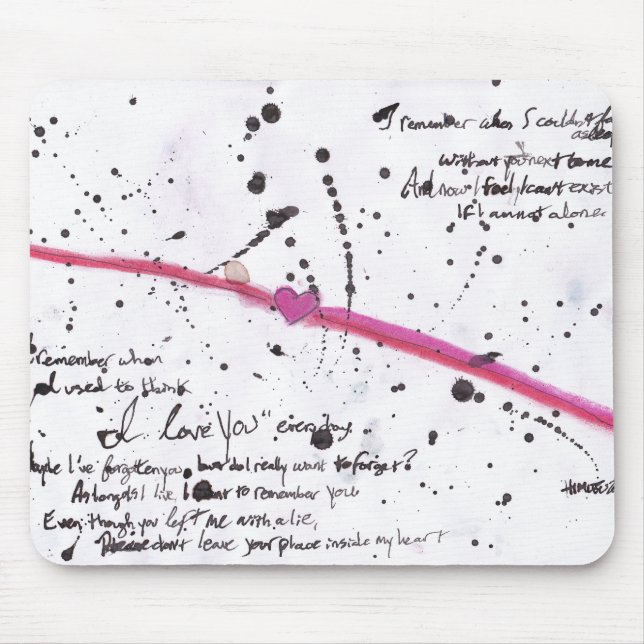 I remember when I couldn't fa
asleep
Without you next to me
And now I feel I cant exist
If I am not alone.
remember when
I used to think
"I love you" everyday.
Maybe I've forgotten you, but do I really want to forget?
As long as I live, I want to remember you
Even though you left me with a lie,
Please don't leave your place inside my heart